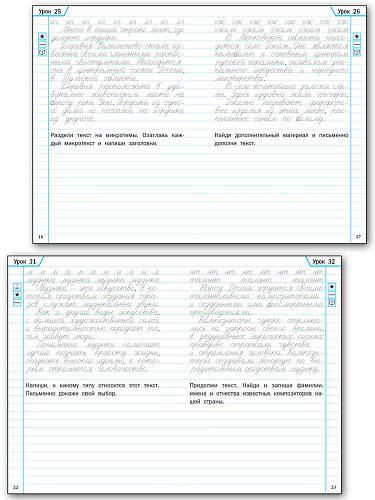 Урок 25
иг иг иг иг иг иг иг иг
Много в нашей стране мест, где
делают игрушки.
Деревня Филимоново стала из-
вестна своими глиняными распис-
ными свистульками. Находится
она в центральной части России,
в Тульской области.
Деревня расположена в уди-
вительно живописном месте на
берегу реки Упы. Игрушки из одно-
го дома не похожи на игрушки
из другого.
Раздели текст на микротемы. Озаглавь каж-
дый микротекст и напиши заголовки.
16
Урок 26
гж гж гж гж гж гж гж
гжель гжель гжель гжель гжель
В Московской области нахо-
дится село Гжель. Оно является
колыбелью и основным центром
русской керамики, символом уни-
кального искусства и народного
мастерства.
В селе богатейшие залежи гли-
ны. Здесь издавна жили гончары.
Гжелью называют фарфоро-
вые изделия из этих мест, рас-
писанные синим по белому.
Найди дополнительный материал и письменно
дополни текст.
17
Урок 31
м м м м м м м м м м
музыка музыка музыка музыка
Музыка — это искусство, в ко-
тором средством создания обра-
зов служат музыкальные звуки.
Как и другие виды искусства,
с большой художественной силой
и выразительностью передаёт то,
чем живут люди.
Понимание музыки помогает
лучше познать красоту жизни,
осознать высокие идеалы, к кото-
рым стремится человечество.
Напиши, к какому типу относится этот текст.
Письменно докажи свой выбор.
22
Урок 32
нт нт нт нт нт нт нт нт
талант талант талант
Народ России гордится своими
талантливыми композиторами
и созданными ими бессмертными
произведениями.
Композиторы чутко отклика-
лись на запросы своего времени,
в задушевных лирических песнях
правдиво отражали чувства
и стремления человека. Компози-
торы создавали богатую по вы-
разительным средствам музыку.
Продолжи текст. Найди и запиши фамилии,
имена и отчества известных композиторов на-
шей страны.
23